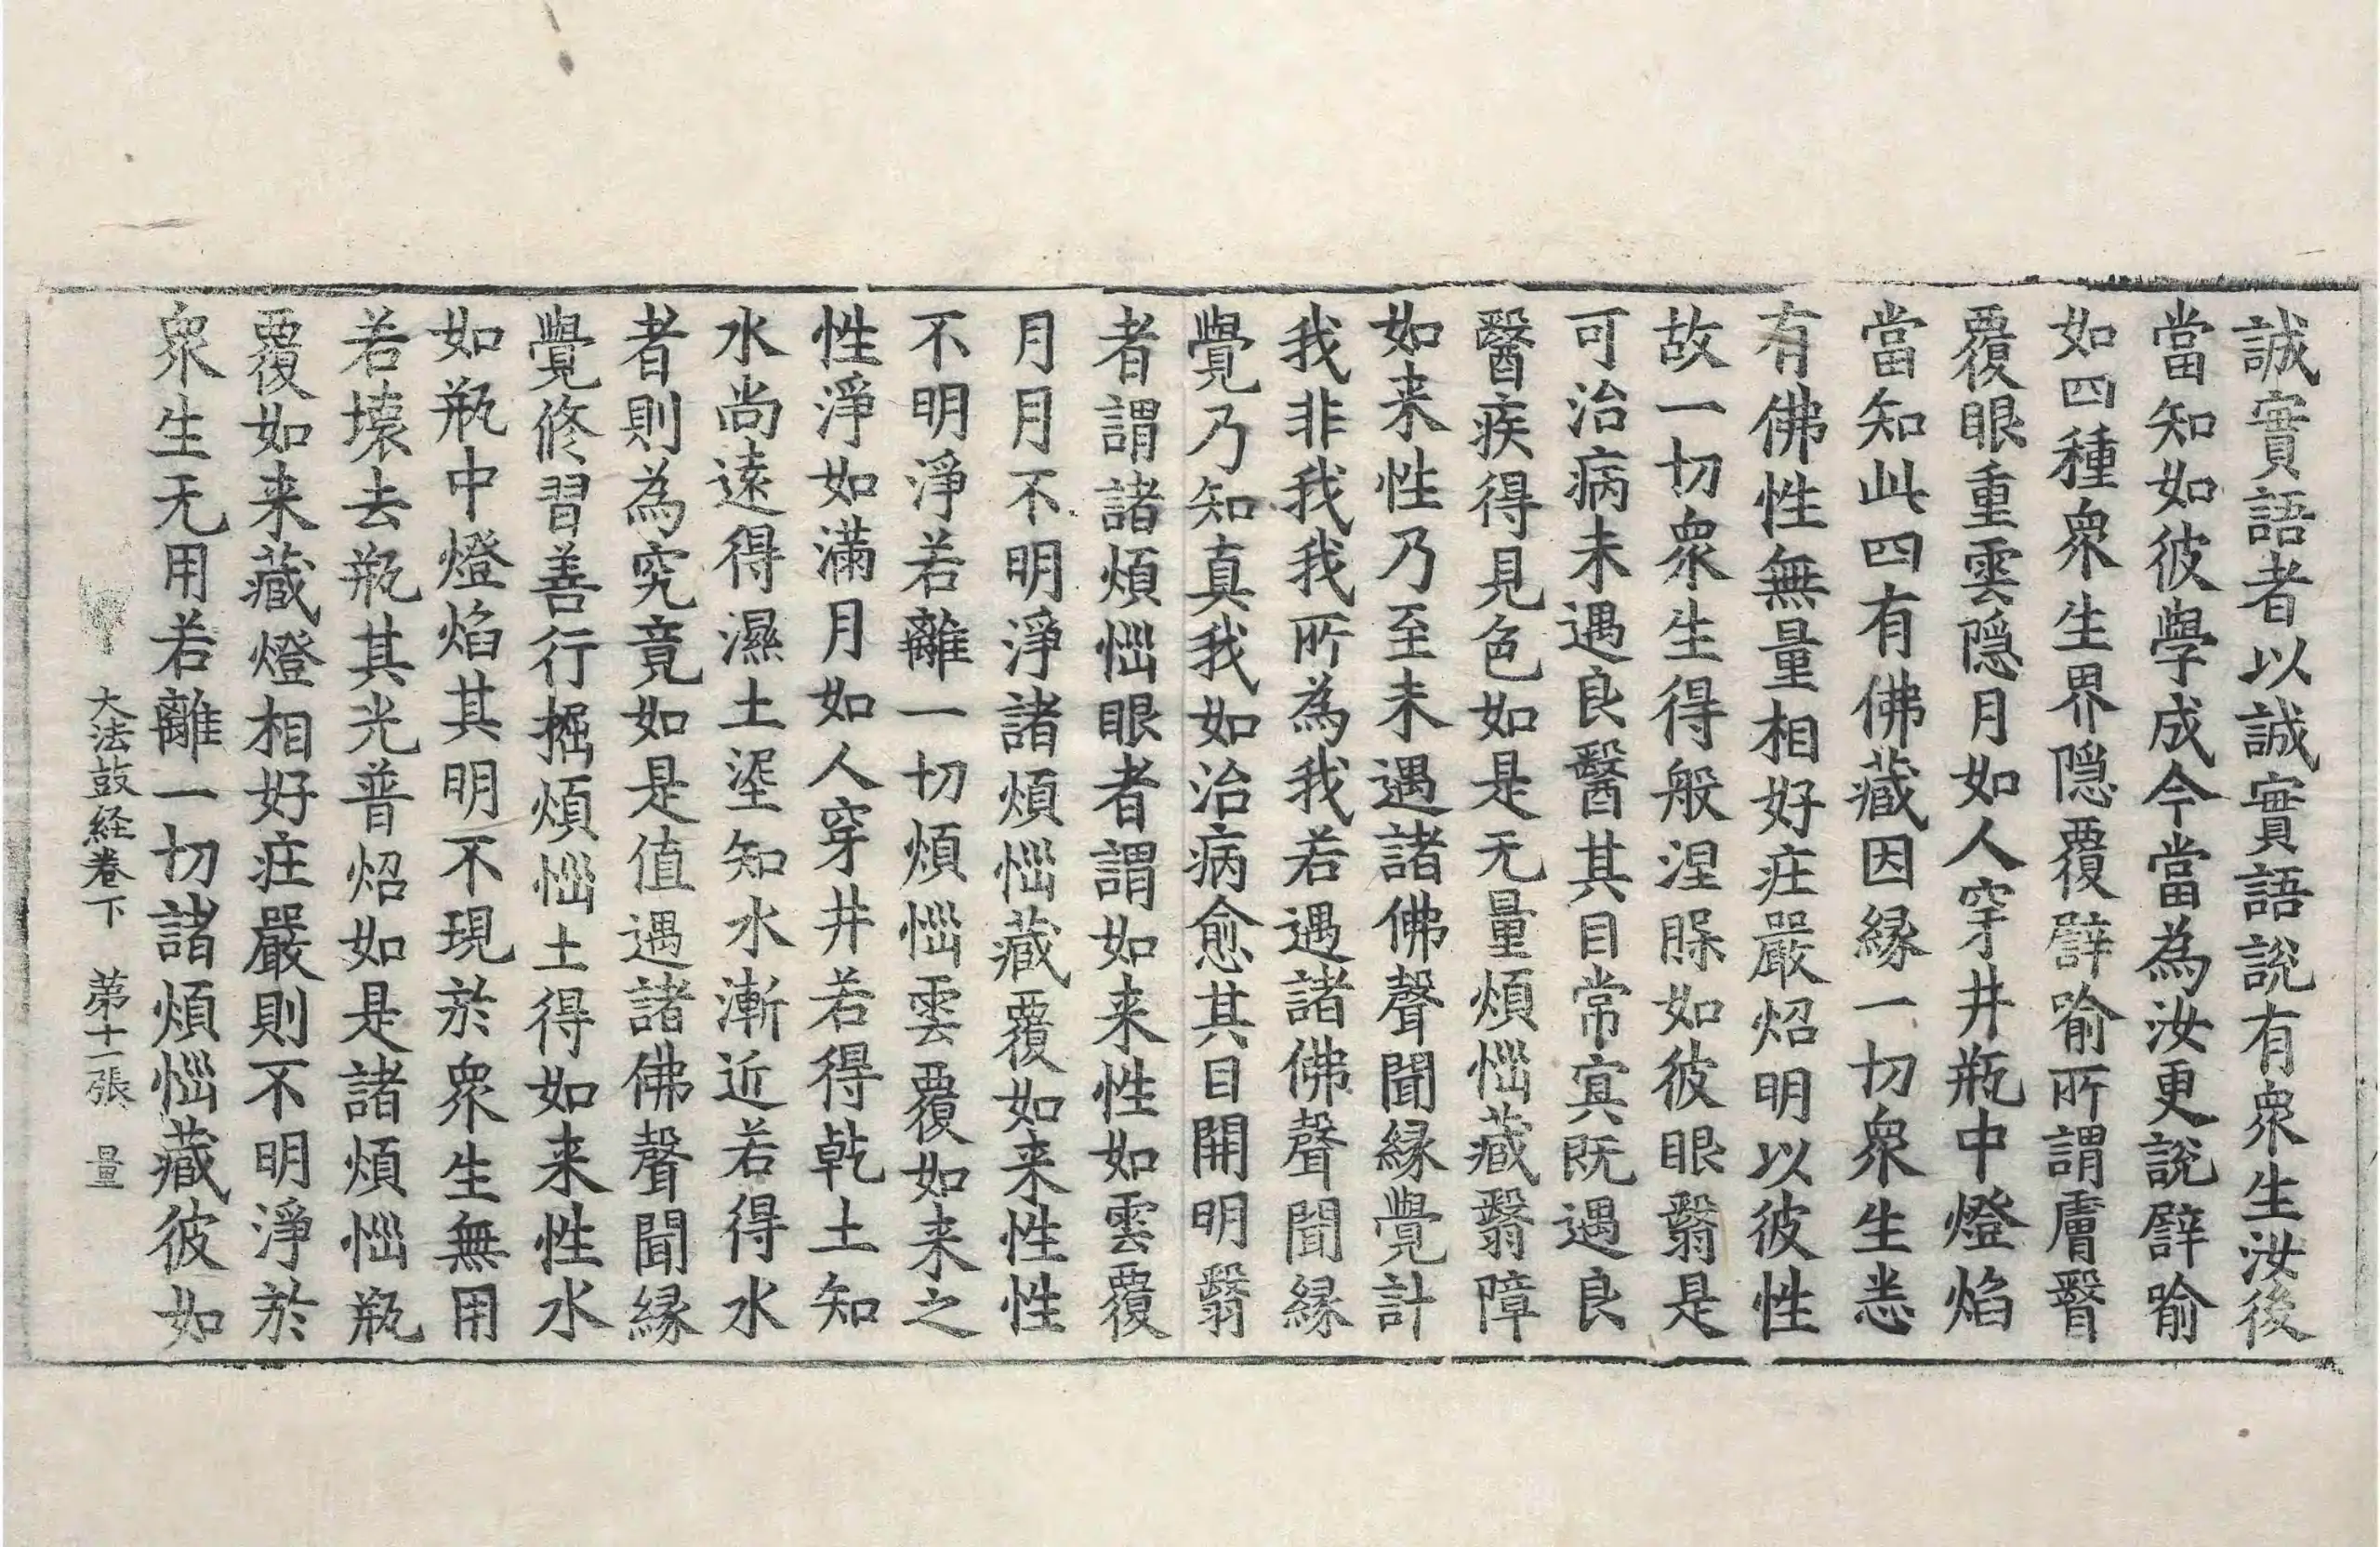 誠實語者以誠實語說有衆生汝後
當知如彼學成今當為汝更說譬喻
如四種衆生界隠覆譬喻所謂膚瞖
覆眼重雲隠月如人穿井瓶中燈焰
當知此四有佛藏因縁一切衆生悉
有佛性無量相好庄嚴炤明以彼性
故一切衆生得般涅槃如彼眼翳是
可治病未遇良醫其目常冥既遇良
醫疾得見色如是无量煩惱藏翳障
如来性乃至未遇諸佛聲聞縁覺計
我非我我所為我若遇諸佛聲聞縁
覺乃知真我如治病愈其目開明翳
者謂諸煩惱眼者謂如来性如雲覆
月月不明淨諸煩惱藏覆如来性性
不明淨若離一切煩惱雲覆如来之
性淨如滿月如人穿井若得乾土知
水尚遠得濕土埿知水漸近若得水
者則為究竟如是值遇諸佛聲聞縁
覺修習善行掘煩惱土得如来性水
如瓶中燈焰其明不現於衆生無用
若壞去瓶其光普炤如是諸煩惱瓶
覆如来藏燈相好庄嚴則不明淨於
衆生无用若離一切諸煩惱藏彼如
大法鼓経卷下　苐十一張　量